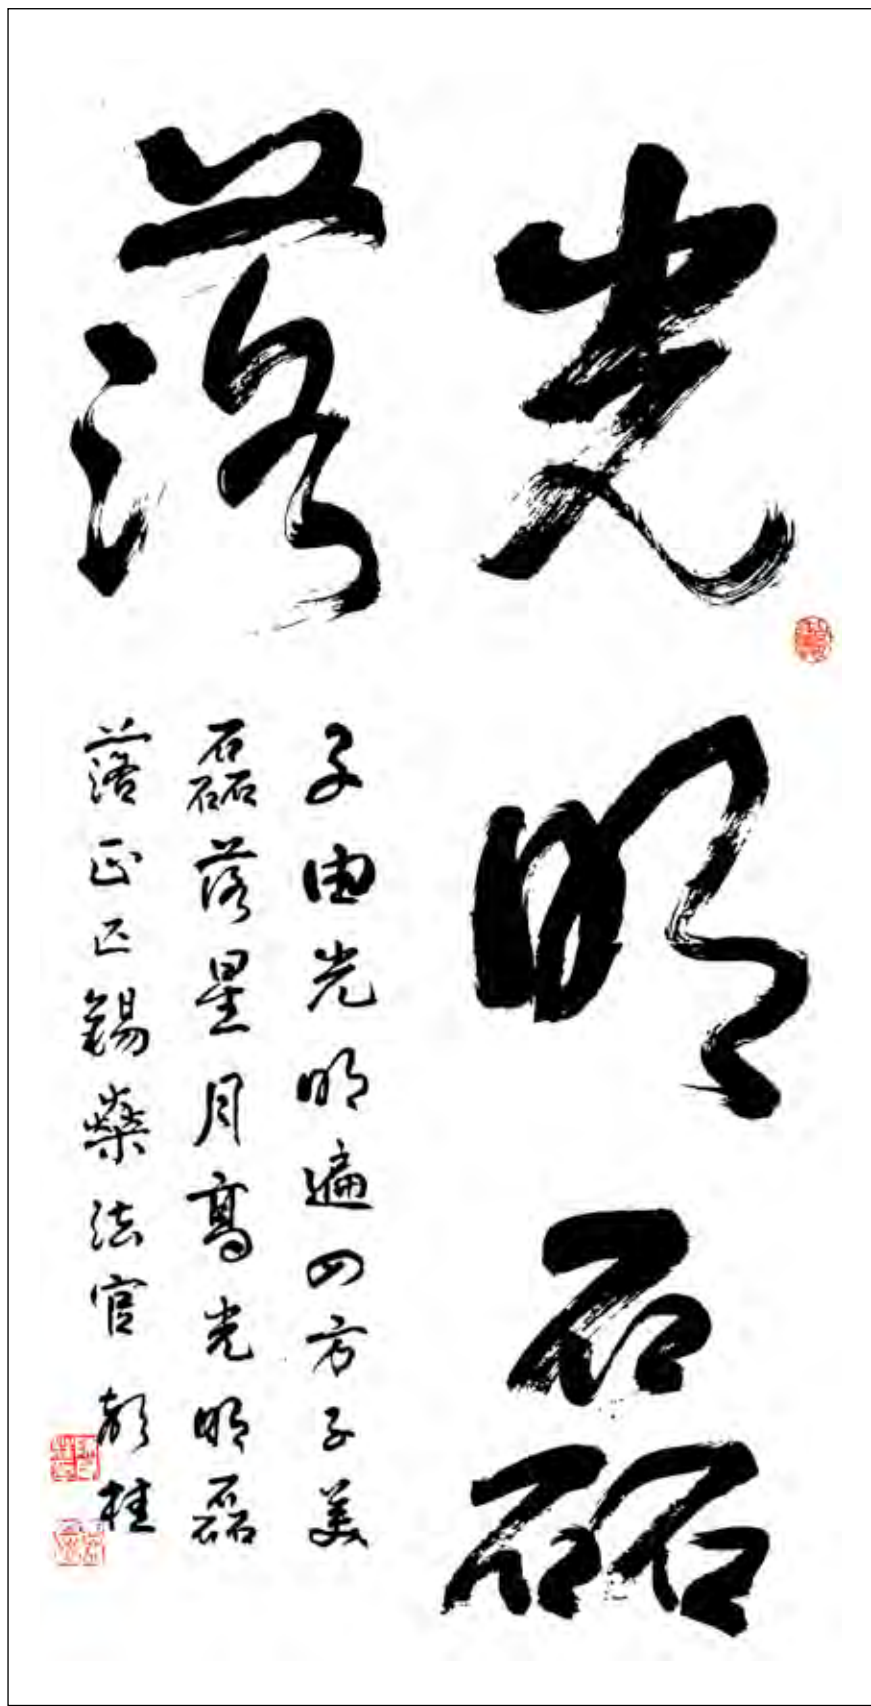 光明磊
落
子由光明遍四方子美
磊落星月高光明磊
落正区錫燊法官 桂